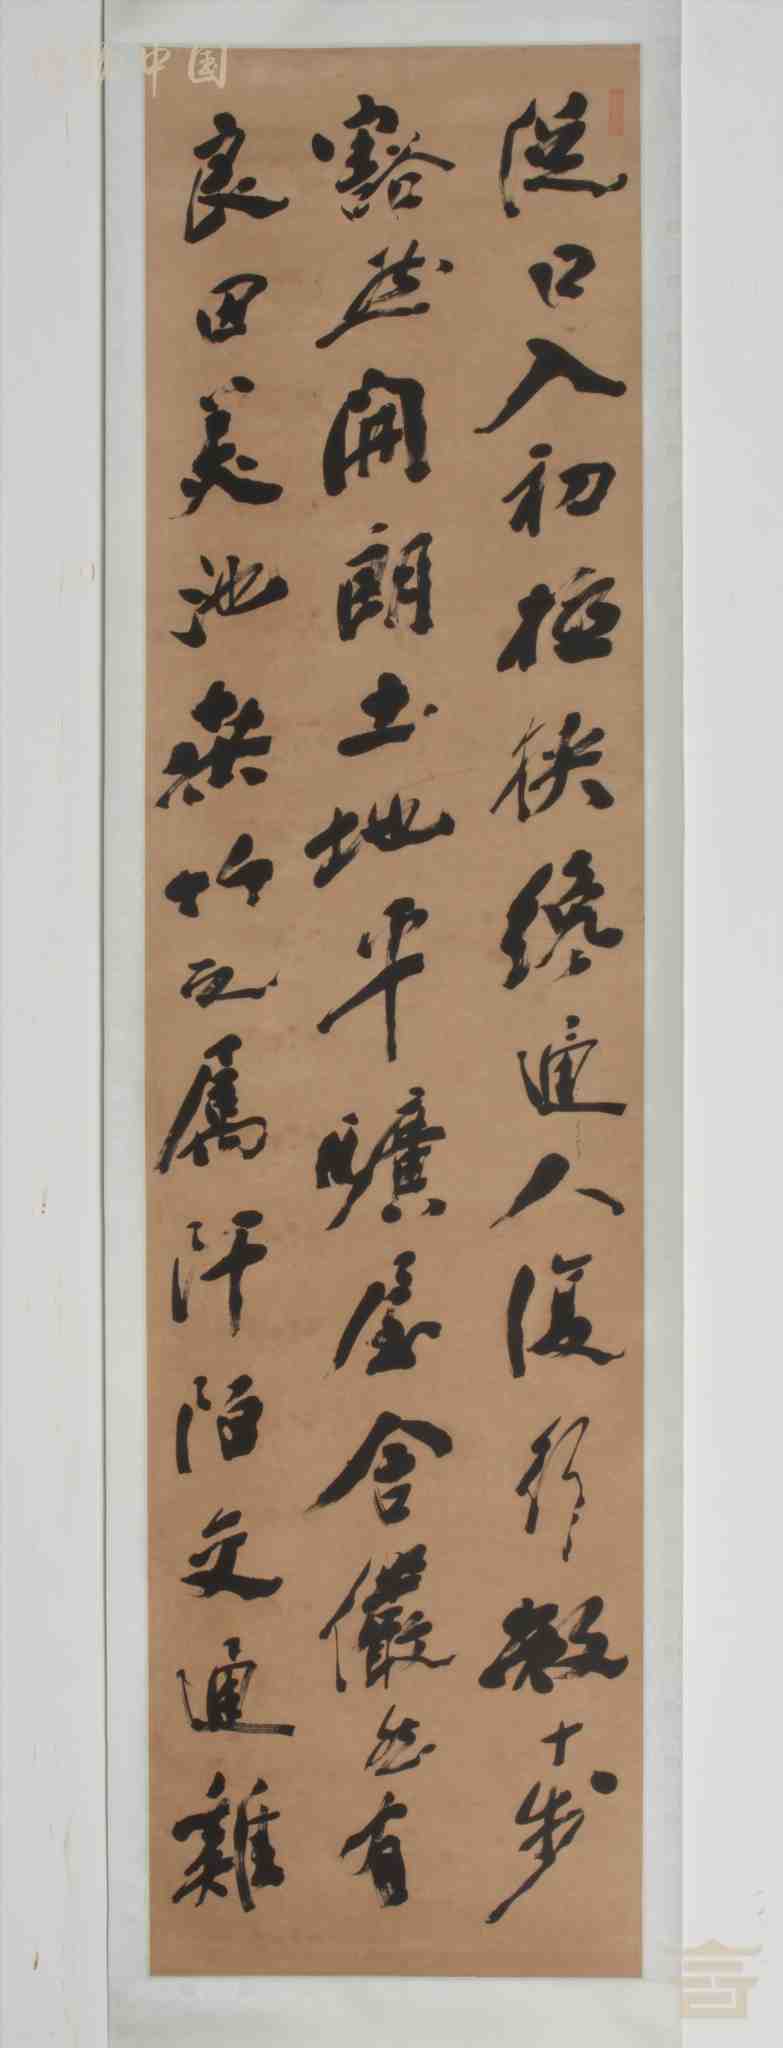 從口入初極狹纔通人復行數十步
豁然開朗土地平曠屋舍儼然有
良田美池桑竹之屬阡陌交通雞
中国